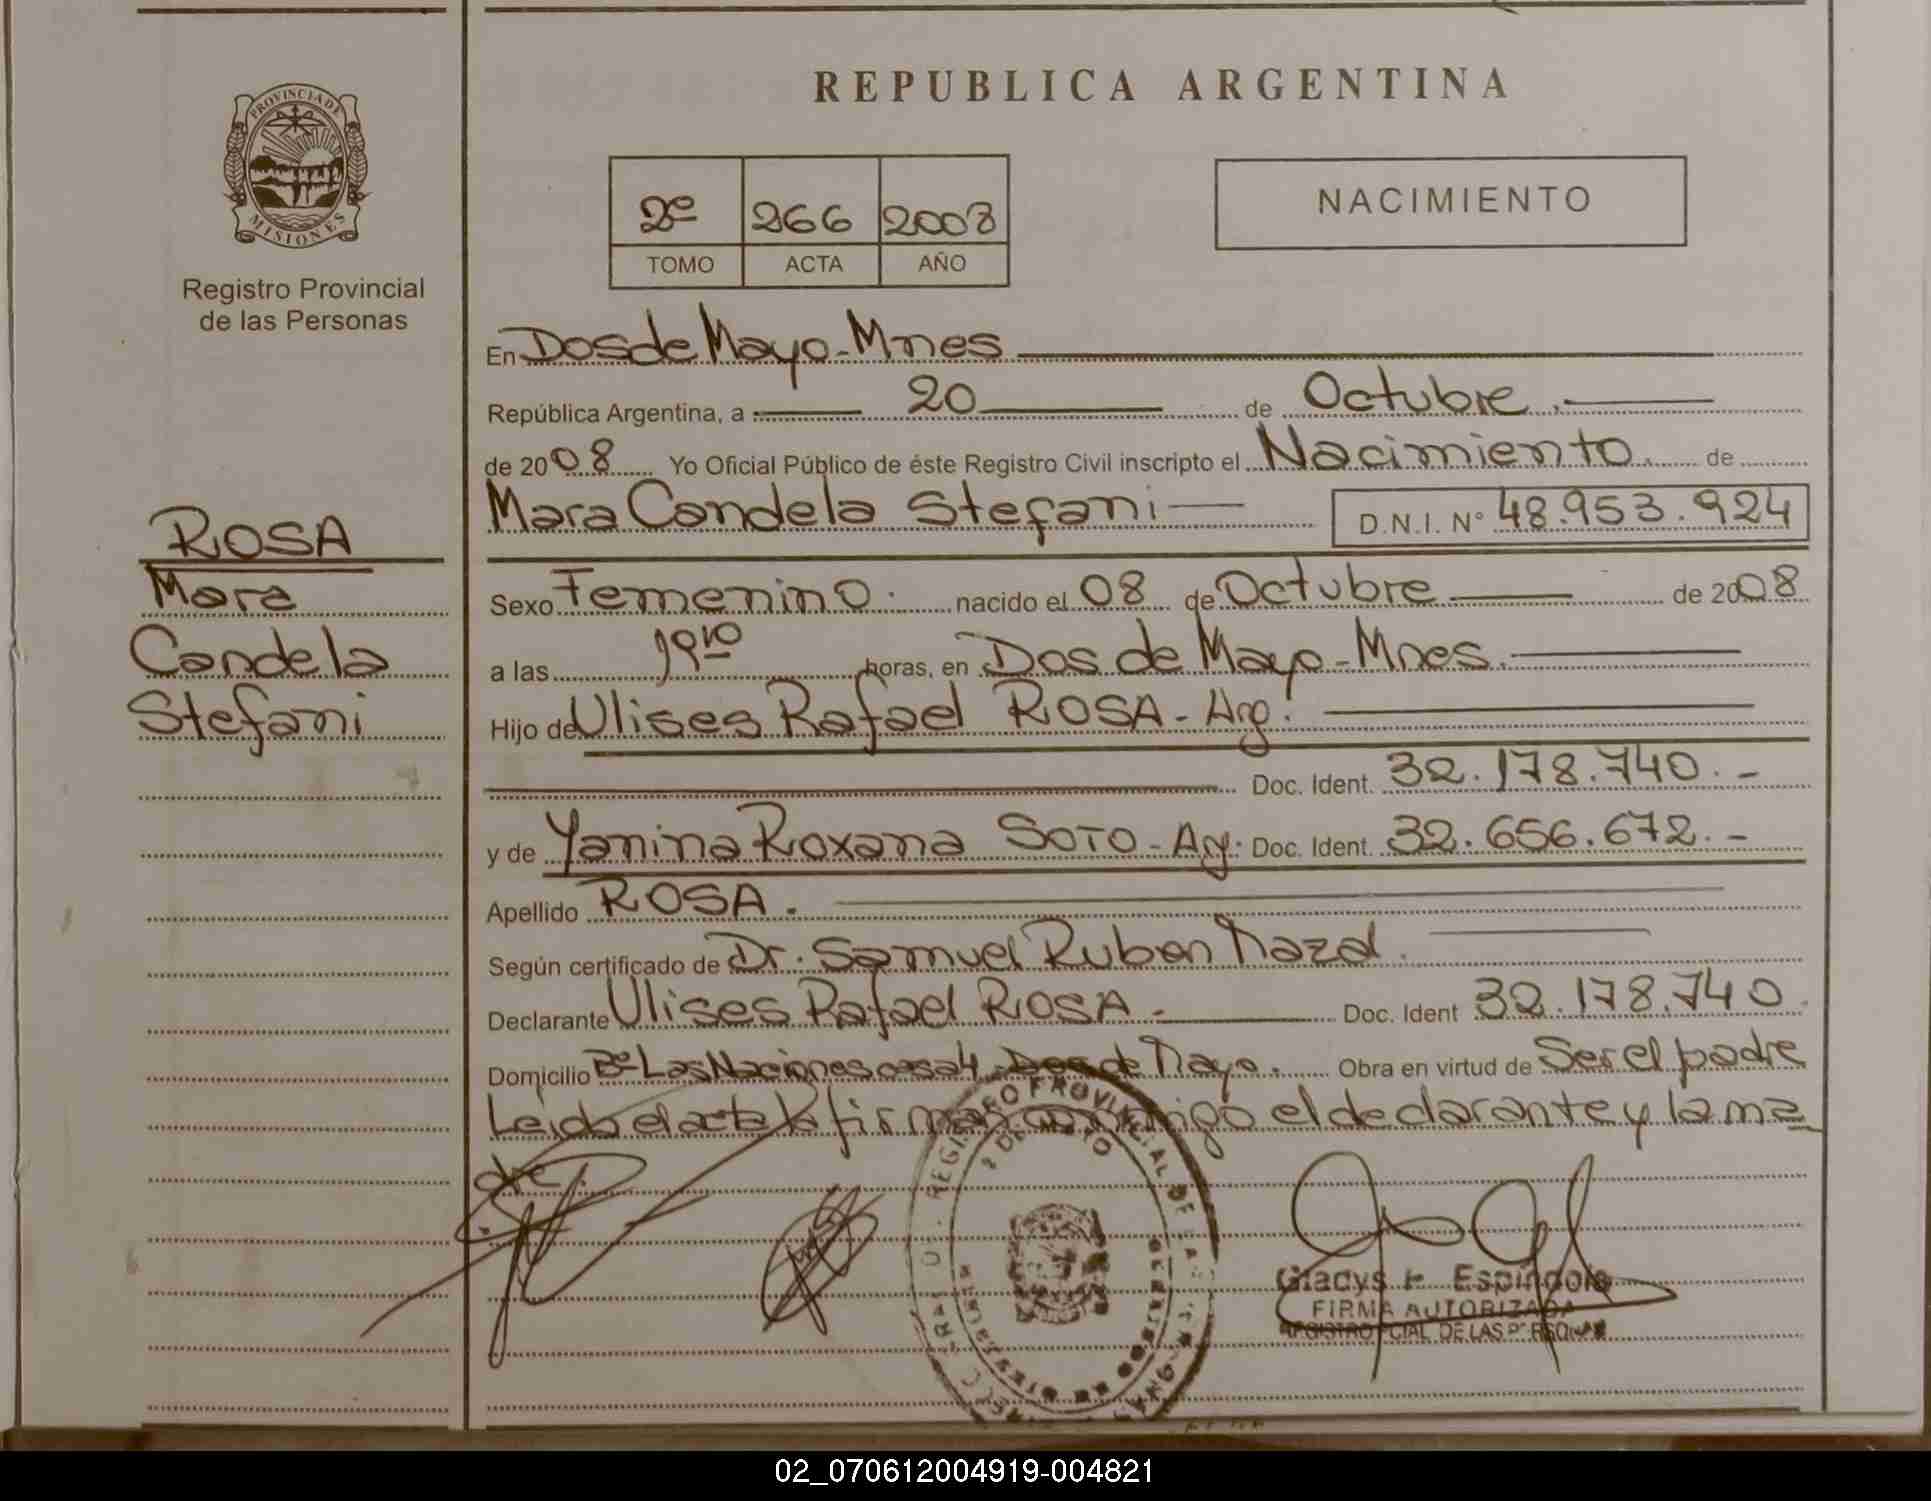 PROVINCIA DE
MISIONES
Registro Provincial
de las Personas
REPUBLICA ARGENTINA
2º 266 2008
TOMO ACTA AÑO
NACIMIENTO
En Dos de Mayo - Mnes
República Argentina, a 20 de Octubre.
de 2008 Yo Oficial Público de éste Registro Civil inscripto el Nacimiento. de
Mara Candela Stefani D.N.I. Nº 48.953.924
ROSA
Mara
Candela
Stefani
Sexo Femenino. nacido el 08 de Octubre de 2008
a las 19 10 horas, en Dos de Mayo - Mnes.
Hijo de Ulises Rafael ROSA - Arg.
Doc. Ident. 32.178.740.-
y de Yanina Roxana SOTO - Arg. Doc. Ident. 32.656.672.-
Apellido ROSA.
Según certificado de Dr. Samuel Ruben Nazal.
Declarante Ulises Rafael ROSA. Doc. Ident 32.178.740.
Domicilio Bº Las Naciones casa 4 Dos de Mayo. Obra en virtud de Ser el padre
Leida el acta la firman conmigo el declarante y la ma
dre.
REGISTRO PROVINCIAL DE LAS
2 DE MAYO
MISIONES
Gladys Espíndola
FIRMA AUTORIZADA
REGISTRO PCIAL DE LAS PERSONAS
02_070612004919-004821